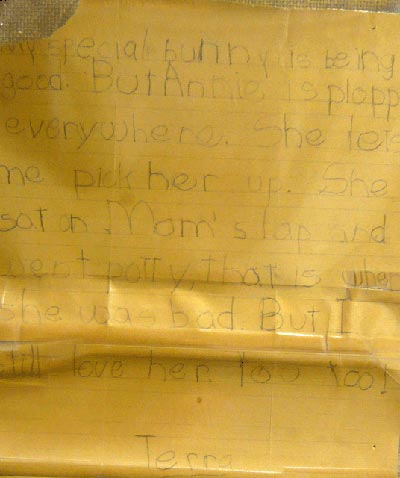 My special bunny is being
good. But Annie is plopp
everywhere. She lets
me pick her up. She
sat on Mom's lap and
went potty, that is when
she was bad. But I
still love her. You too!
Terra